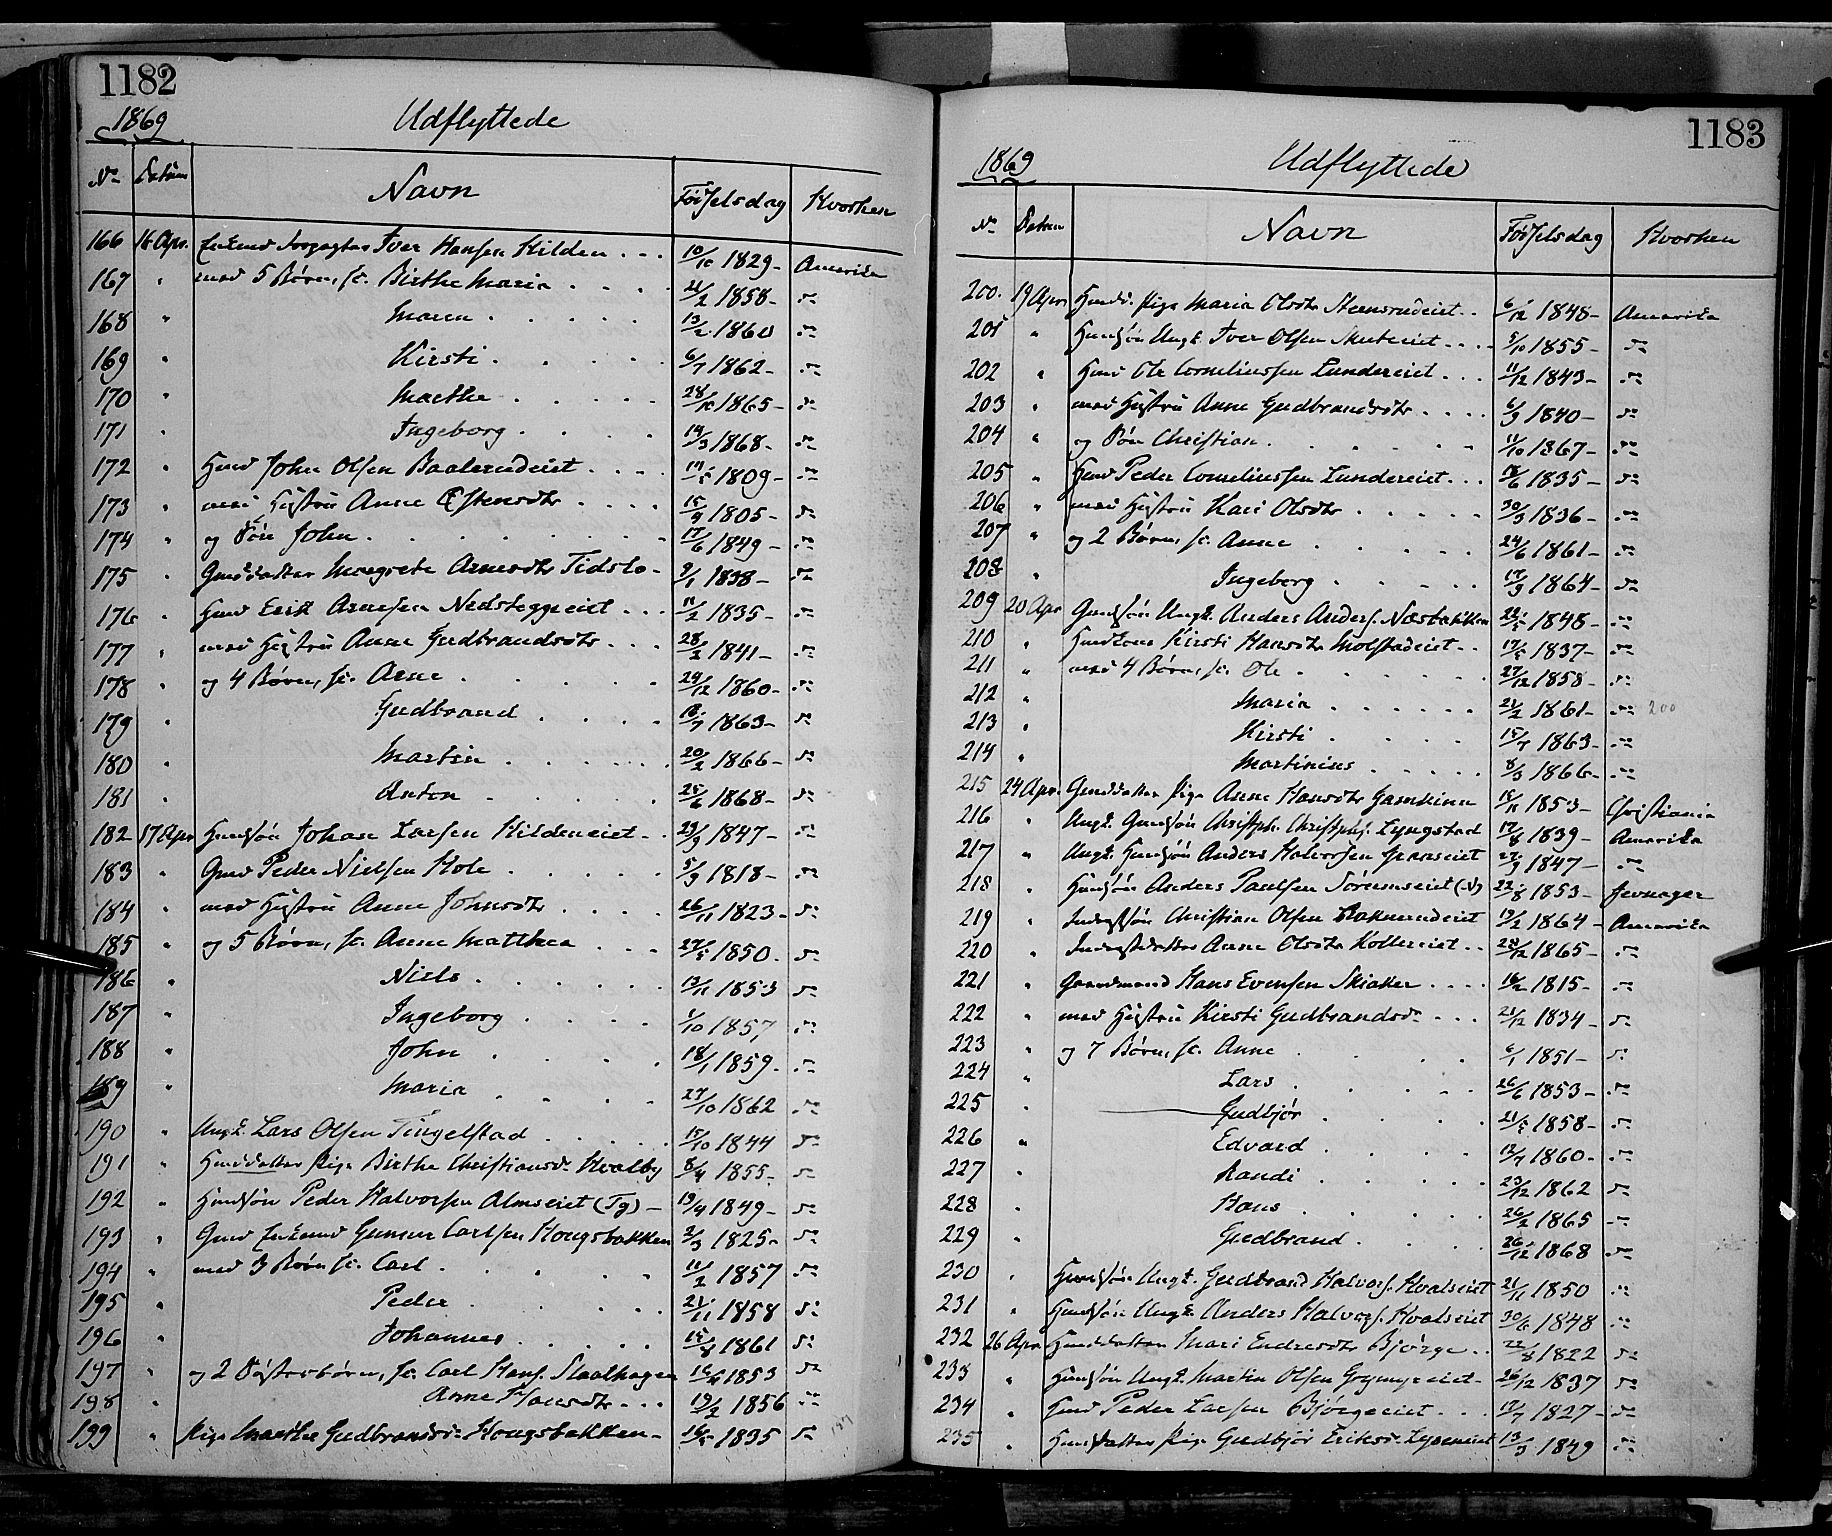 1182
1869 Udflyttede
No Datum Navn Føiselsdag Hvorhen
166 16 Apr. Enkmd Iver Hansen Kilden 10/10 1829 Amerika
167 " med 5 Børn, sc. Birthe Maria /2 1858 do
168 " Maren 13/2 1860 do
169 " Kirsti 6/7 1862 do
170 " Marthe 28/10 1865 do
171 " Ingeborg 14/3 1868 do
172 " Husmd John Olsen Baalerudeiet 1809 do
173 " med Hustru Anne Østensdtr 15/9 1805 do
174 " og Søn John 17/6 1849 do
175 " Gmddatter Margrete Arnesdtr Tidslo 9/1 1838 do
176 " Husmd Erik Arnesen Nedsteggeeiet 11/2 1835 do
177 " med Hustru Anne Gudbrandsdtr 28/2 1841 do
178 " og 4 Børn, sc. Arne 29/12 1860 do
179 " Gudbrand 18/7 1863 do
180 " Martin 20/2 1866 do
181 " Anton 25/6 1868 do
182 17 Apr Husmsøn Johan Larsen Kildeneiet 23/9 1847 do
183 " Gmd Peder Nielsen Hole 5/9 1818 do
184 " med Hustru Anne Johnsdtr 26/11 1823 do
185 " og 5 Børn, sc. Anne Mathea 27/5 1850 do
186 " Niels 13/11 1853 do
187 " Ingeborg 1/10 1857 do
188 " John 18/1 1859 do
189 " Maria 27/10 1862 do
190 " Ungk. Lars Olsen Tingelstad 15/10 1844 do
191 " Husmddatter Pige Birthe Christiansd. Hvalby 8/4 1855 do
192 " Husmsøn Peder Halvorsen Almseiet (Tg) 19/4 1849 do
193 " Gmd Enkemd Gunner Carlsen Hougsbakken 2/3 1825 do
194 " med 3 Børn sc. Carl 11/2 1857 do
195 " Peder 21/11 1858 do
196 " Johannes 1861 do
197 " og 2 Fosterbørn, sc. Carl Hans. Staalhagen 1853 do
198 " Anne Hansdtr 19/2 1856 do
199 " Pige Marthe Gudbrandsd. Hougsbakken 1835 do
1183
1869 Udflyttede
No Datum Navn Føiselsdag Hvorhen
200. 19 Apr. Husmd. Pige Maria Olsdtr Steensrudeiet 6/12 1848 Amerika
201 " Husmsøn Ungk. Iver Olsen Skuteeiet 5/10 1855 do
202 " Husmd Ole Corneliussen Lundereiet 11/12 1843 do
203 " med Hustru Anne Gudbrandsdtr 6/9 1840 do
204 " og Søn Christian 11/10 1867 do
205 " Husmd Peder Corneliussen Lundereiet 1835 do
206 " med Hustru Kari Olsdtr 30/3 1836 do
207 " og 2 Børn, sc. Anne 24/6 1861 do
208 " Ingeborg 17/9 1864 do
209 20 Apr Gmdsøn Ungk. Anders Anders. Næsbakken 1848 do
210 " Husmdkone Kirsti Hansdtr Molstadeiet 1837 do
211 " med 4 Børn, sc. Ole 27/12 1858 do
212 " Maria 21/2 1861 do 200
213 " Kirsti 15/7 1863 do
214 " Martinius 8/3 1866 do
215 24 Apr. Gmddatter Pige Anne Hansdtr Gamkinn 1853 Christiania
216 " Ungk. Gmdsøn Christoph. Christophs. Lyngstad 17/8 1839 Amerika
217 " Ungk. Husmsøn Anders Halvorsen Granseiet 1847 do
218 " Husmsøn Anders Paulsen Sørumseiet (N) 22/8 1853 Jevnager
219 " Inderstsøn Christian Olsen Baknerudeiet 19/2 1864 Amerika
220 " Inderstdatter Anne Olsdtr Kollereiet 28/12 1865 do
221 " Gaardmand Hans Evensen Skiaker 16/2 1815 do
222 " med Hustru Kirsti Gudbrandsd. 21/12 1834 do
223 " og 7 Børn, sc. Anne 6/1 1851 do
224 " Lars 26/6 1853 do
225 " Gudbjør 21/5 1858 do
226 " Edvard 12/7 1860 do
227 " Randi 23/12 1862 do
228 " Hans 26/2 1865 do
229 " Gudbrand 26/12 1868 do
230 " Husmsøn Ungk. Gudbrand Halvors. Hvalseiet 21/11 1850 do
231 " Husmsøn Ungk. Anders Halvors. Hvalseiet 30/6 1848 do
232 26 Apr Husmddatter Mari Endresdtr Bjørge 22/8 1822 do
233 " Husmsøn Ungk. Martin Olsen Grymyreiet 26/12 1837 do
234 " Husmd Peder Larsen Bjørgeeiet 12/7 1827 do
235 " Husmdatter Pige Gudbjør Eriksd. Lyseneiet 13/3 1849 do